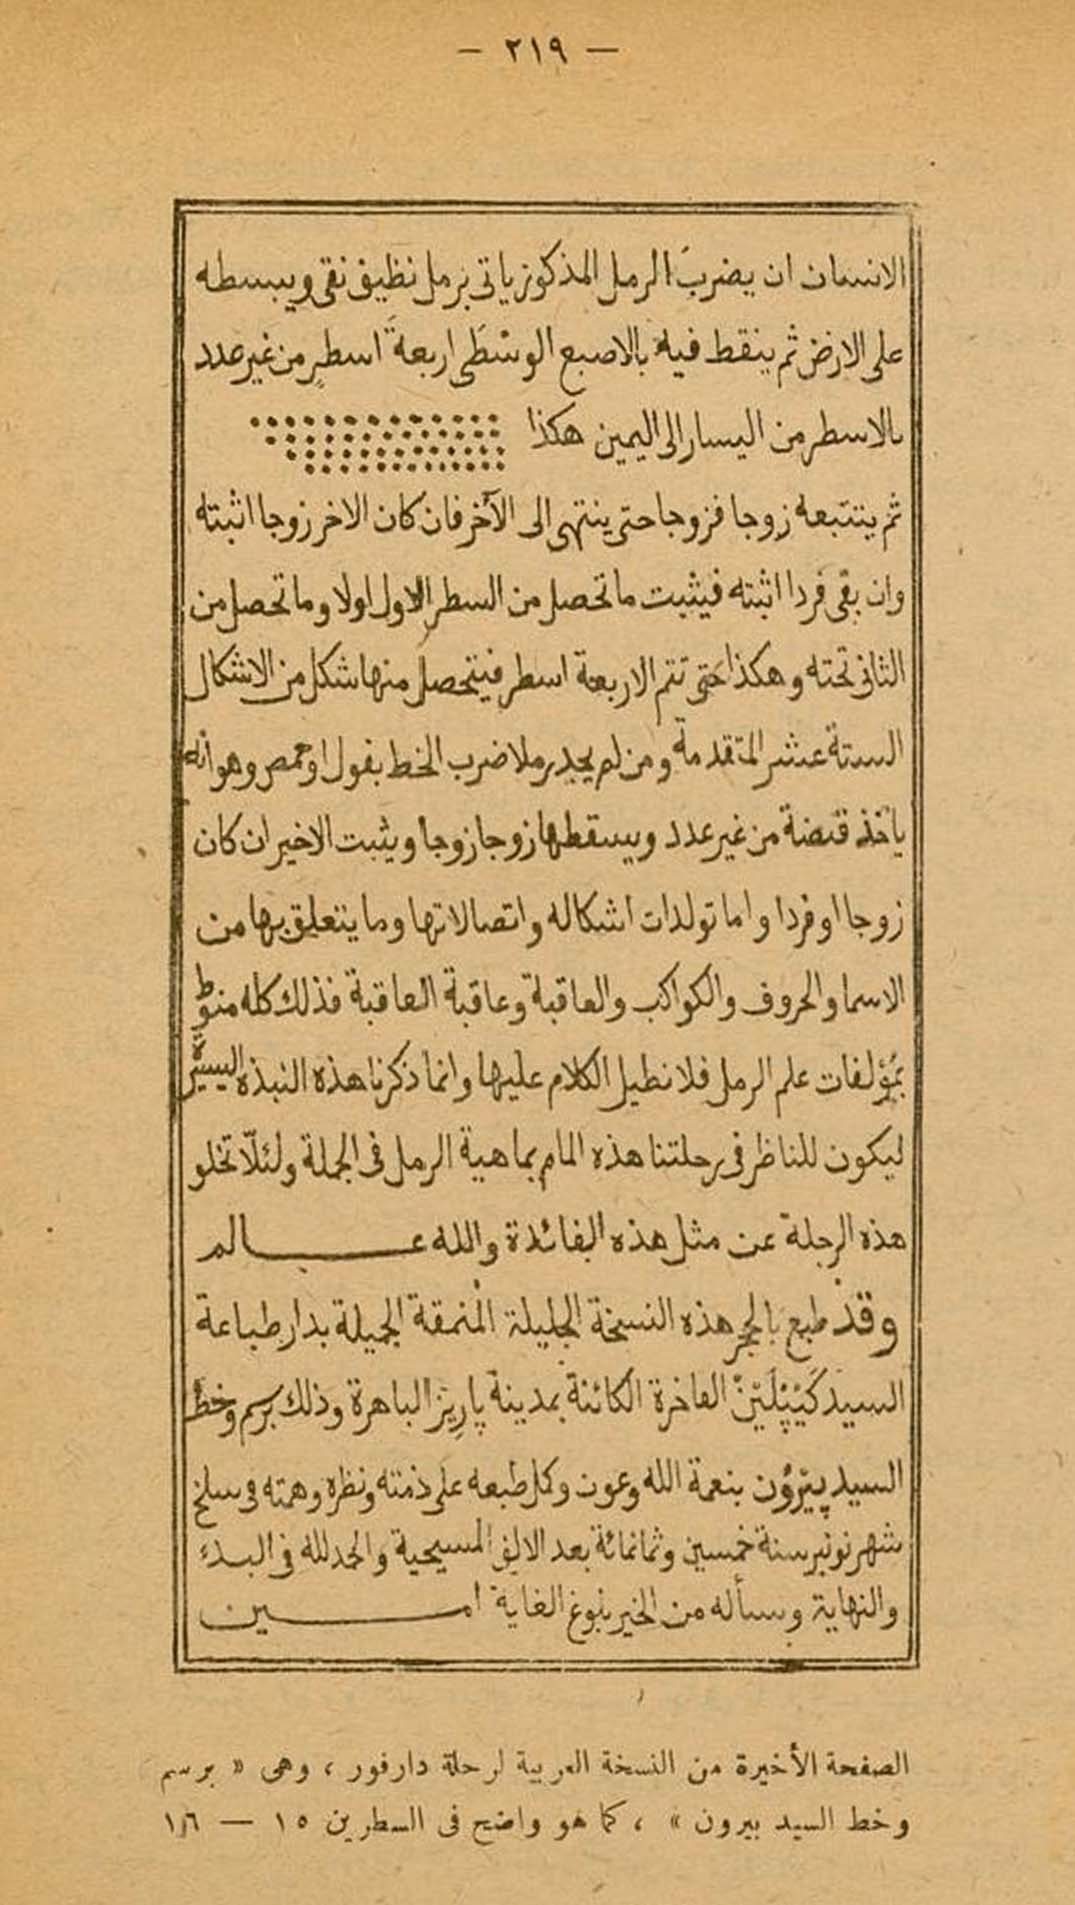 — ٢١٩ —
الانسان ان يضربَ الرمل المذكور ياتى برمل نظيف نقى ويبسطه
على الارض ثم ينقط فيه بالاصبع الوسْطَى اربعةَ اسطرٍ من غير عدد
بالاسطر من اليسار الى اليمين هكذا
ثم يتتبعه زوجا فزوجا حتى ينتهى الى الآخر فان كان الاخر زوجا اثبته
وان بقى فردا اثبته فيثبت ما تحصل من السطر الاول اولا وما تحصل من
الثانى تحته وهكذا حَتى تتم الاربعة اسطر فيتحصل منها شكل من الاشكال
الستة عشر المتقدمة ومن لم يجد رملا ضرب الخط بفول او حمص وهو انه
ياخذ قبضة من غير عدد ويسقطها زوجا زوجا ويثبت الاخير ان كان
زوجا او فردا واما تولدات اشكاله واتصالاتها وما يتعلق بها من
الاسما والحروف والكواكب والعاقبة وعاقبة العاقبة فذلك كله منوط
بمؤلفات علم الرمل فلا نطيل الكلام عليها وانما ذكرنا هذه النبذه اليسيرة
ليكون للناظر فى رحلتنا هذه المام بماهية الرمل فى الجملة ولئلّا تخلو
هذه الرحلة عن مثل هذه الفائدة والله عـــــالم
وقد طبع بالحجر هذه النسخة الجليلة المنمقة الجميلة بدار طباعة
السيد كَيَپْلَيَنْ الفاخرة الكائنة بمدينة پاريز الباهرة وذلك برسم وخط
السيد پيرون بنعمة الله وعون وكمل طبعه على ذمته ونظره وهمته فى سلخ
شهر نونبر سنة خمسين وثمانمائة بعد الالف المسيحية والحمد لله فى البدء
والنهاية ونسأله من الخير بلوغ الغاية امـــــين
الصفحة الأخيرة من النسخة العربية لرحلة دارفور ، وهى « برسم
وخط السيد بيرون » ، كما هو واضح فى السطرين ١٥ — ١٦